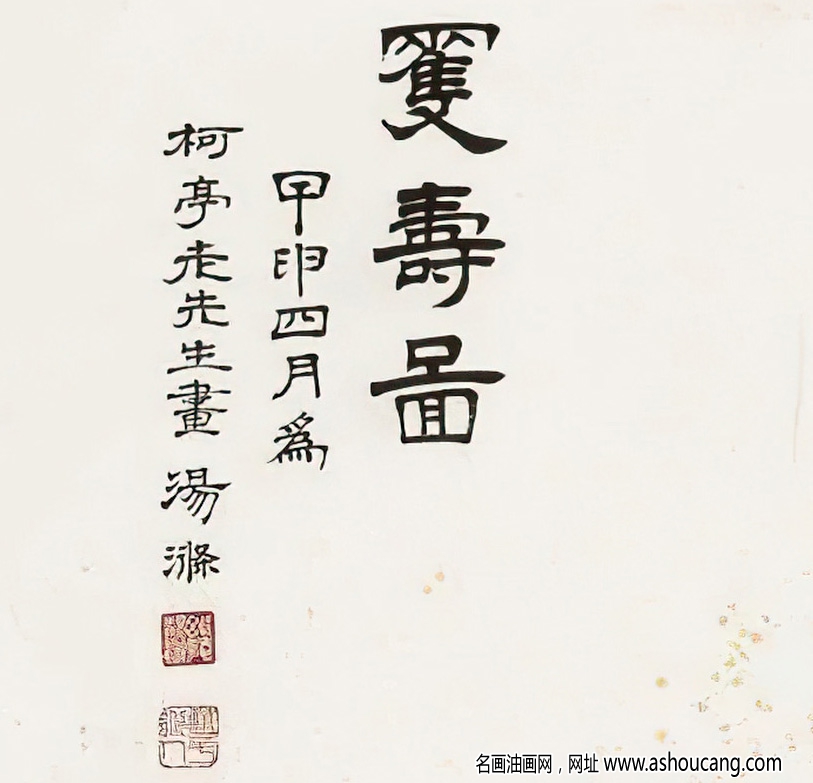 壽啚
甲申四月為
柯亭老先生畫 湯滌
名画油画网，网址 www.ashoucang.com